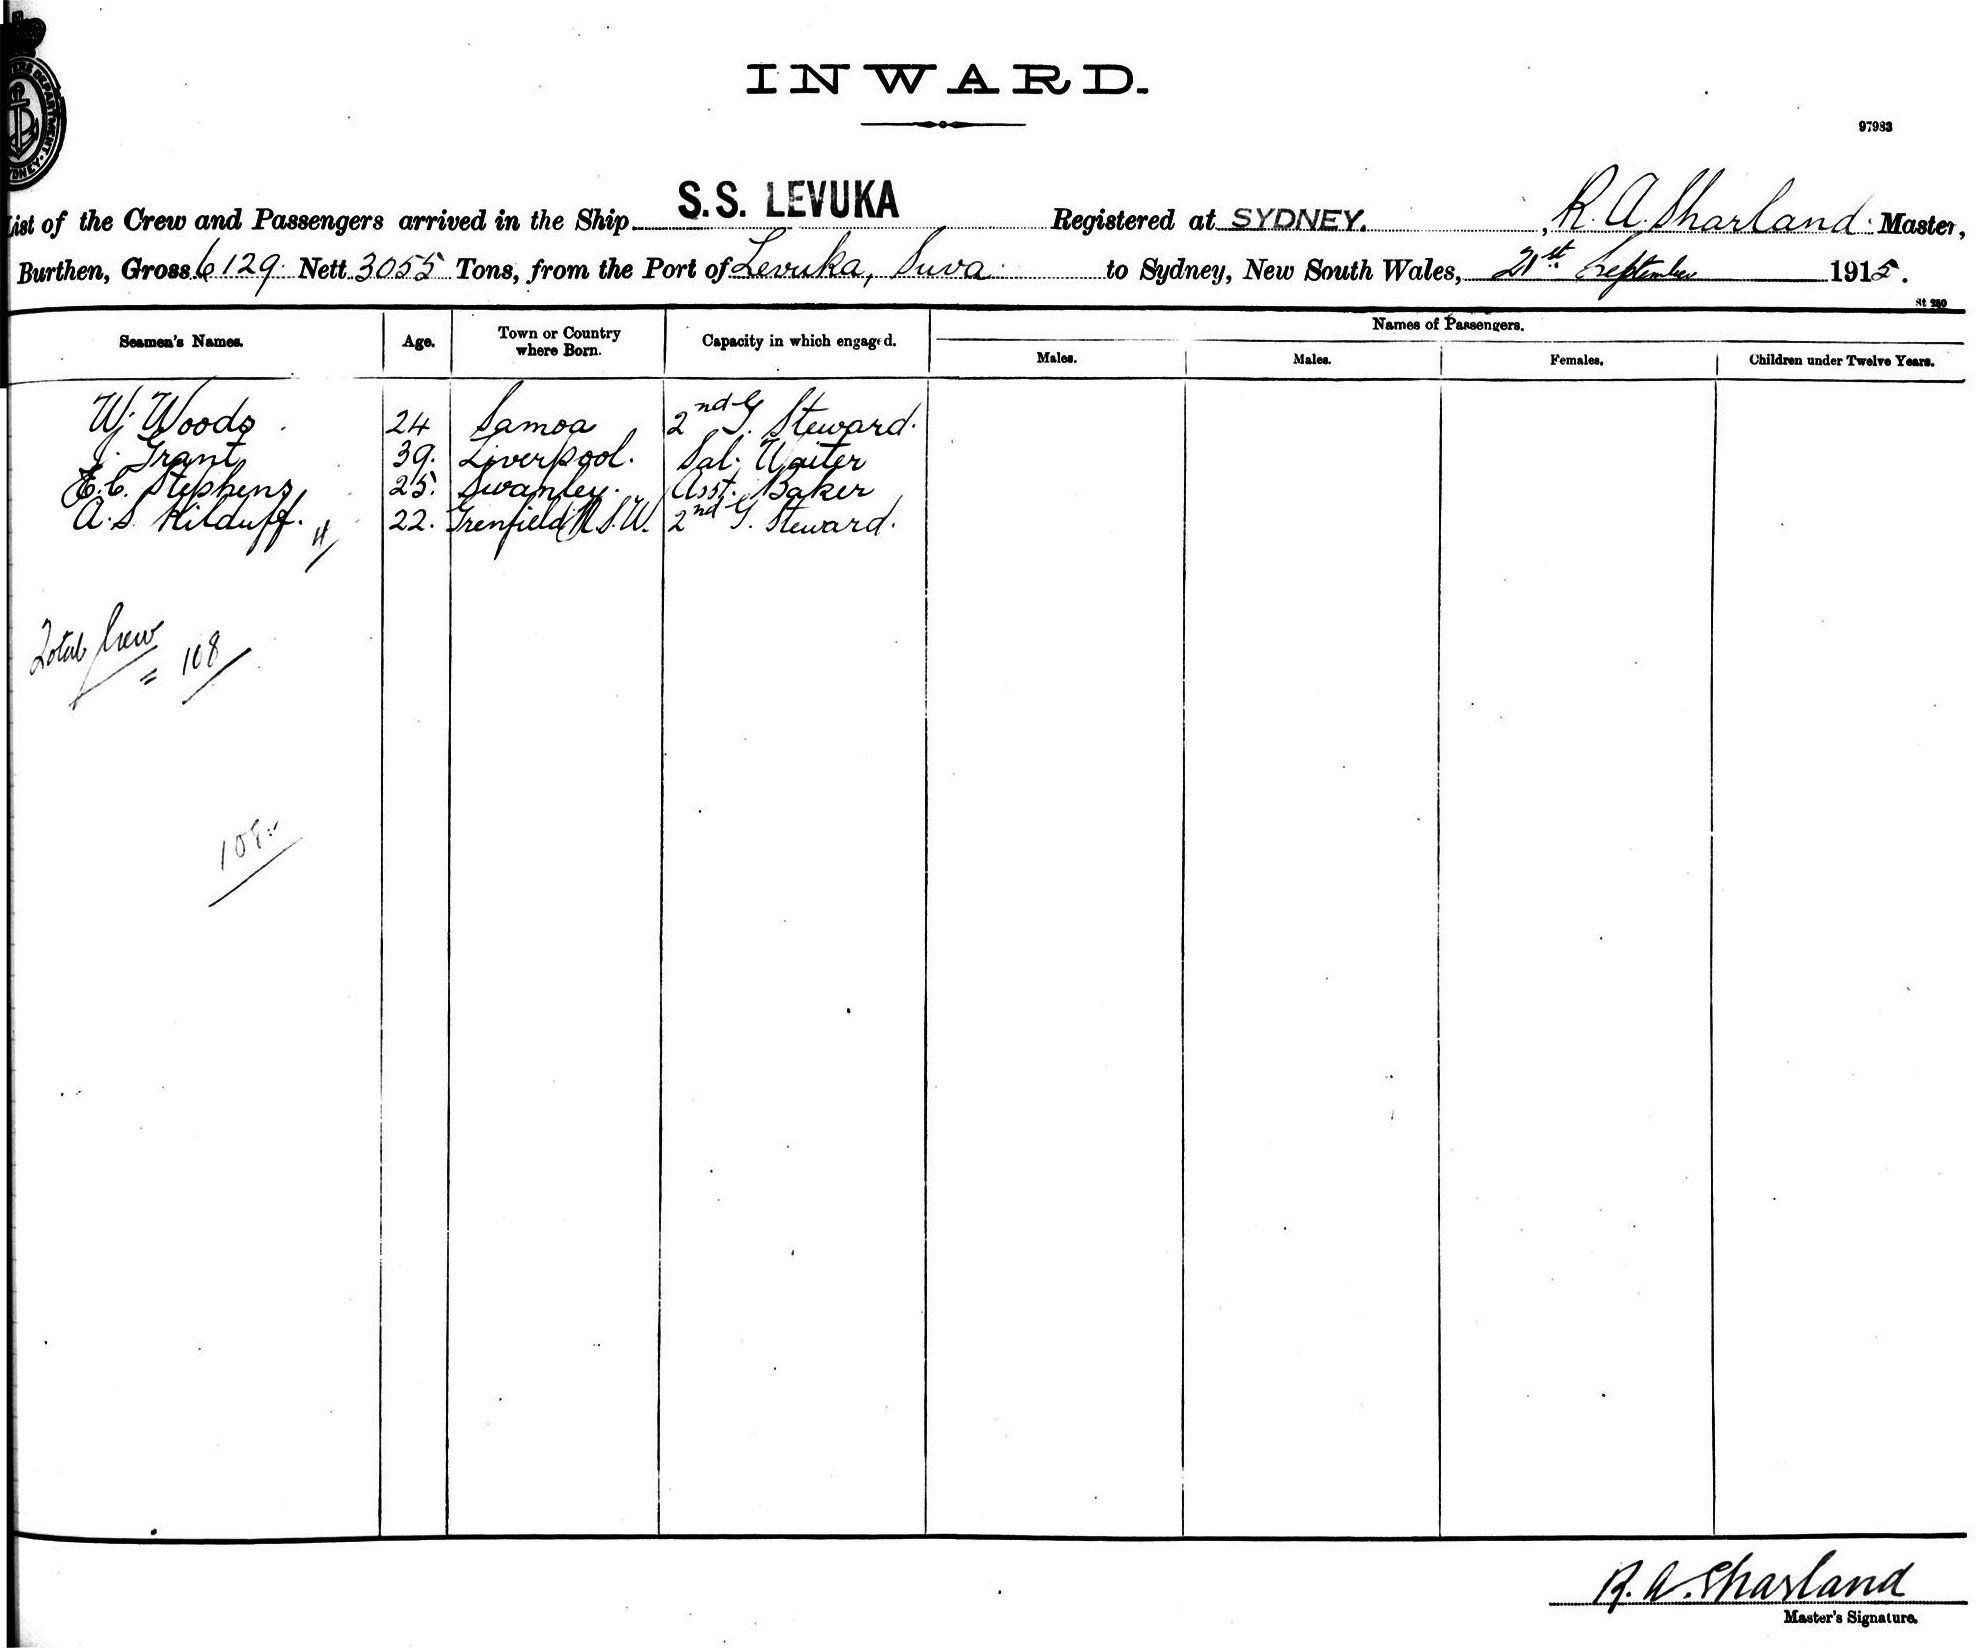 INWARD.
97983
List of the Crew and Passengers arrived in the Ship S.S. LEVUKA Registered at SYDNEY. , R. A. Sharland Master,
Burthen, Gross 6129 Nett 3055 Tons, from the Port of Levuka, Suva to Sydney, New South Wales, 21st September 1915.
St 250
Seamen's Names. Age. Town or Country where Born. Capacity in which engaged. Names of Passengers.
Males. Males. Females. Children under Twelve Years.
W. Woods 24 Samoa 2nd G. Steward.
J. Grant 39. Liverpool. Sal. Waiter
E. C. Stephens 25. Swanley. Asst. Baker
A. S. Kilduff. 22. Grenfield N.S.W. 2nd G. Steward.
4
Total Crew = 108
108
R. A. Sharland
Master's Signature.